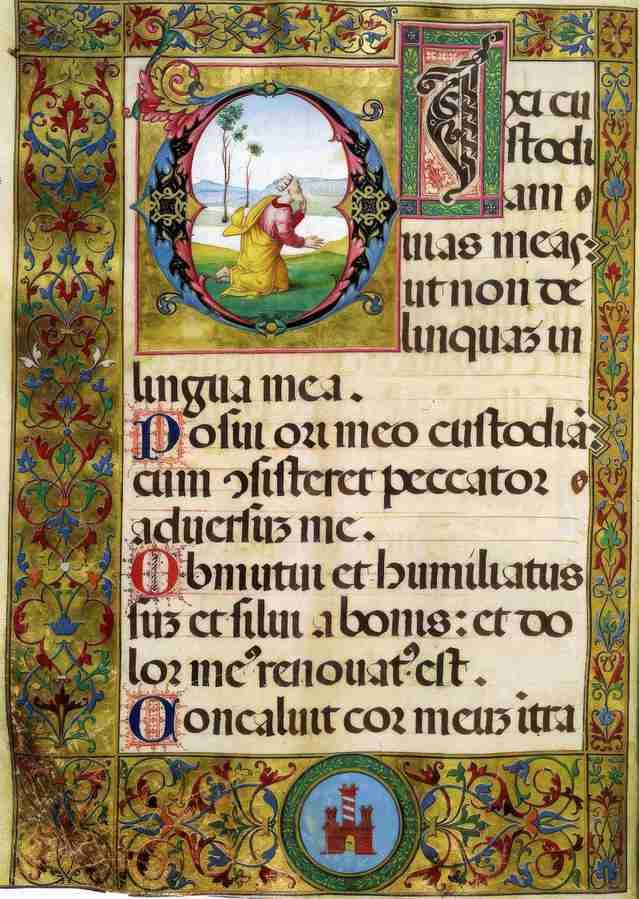 DIxi cu
stodi
am
uias meas:
ut non de
linquaʒ in
lingua mea.
Posui ori meo custodiā:
cum ꝯsisteret peccator
aduersuʒ me.
Obmutui et humiliatus
suʒ et silui a bonis: et do
lor meꝰ renouatꝰ est.
Concaluit cor meuʒ ītra